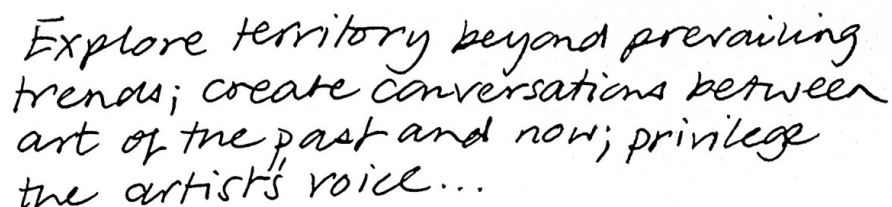 Explore territory beyond prevailing
trends; create conversations between
art of the past and now; privilege
the artist's voice...